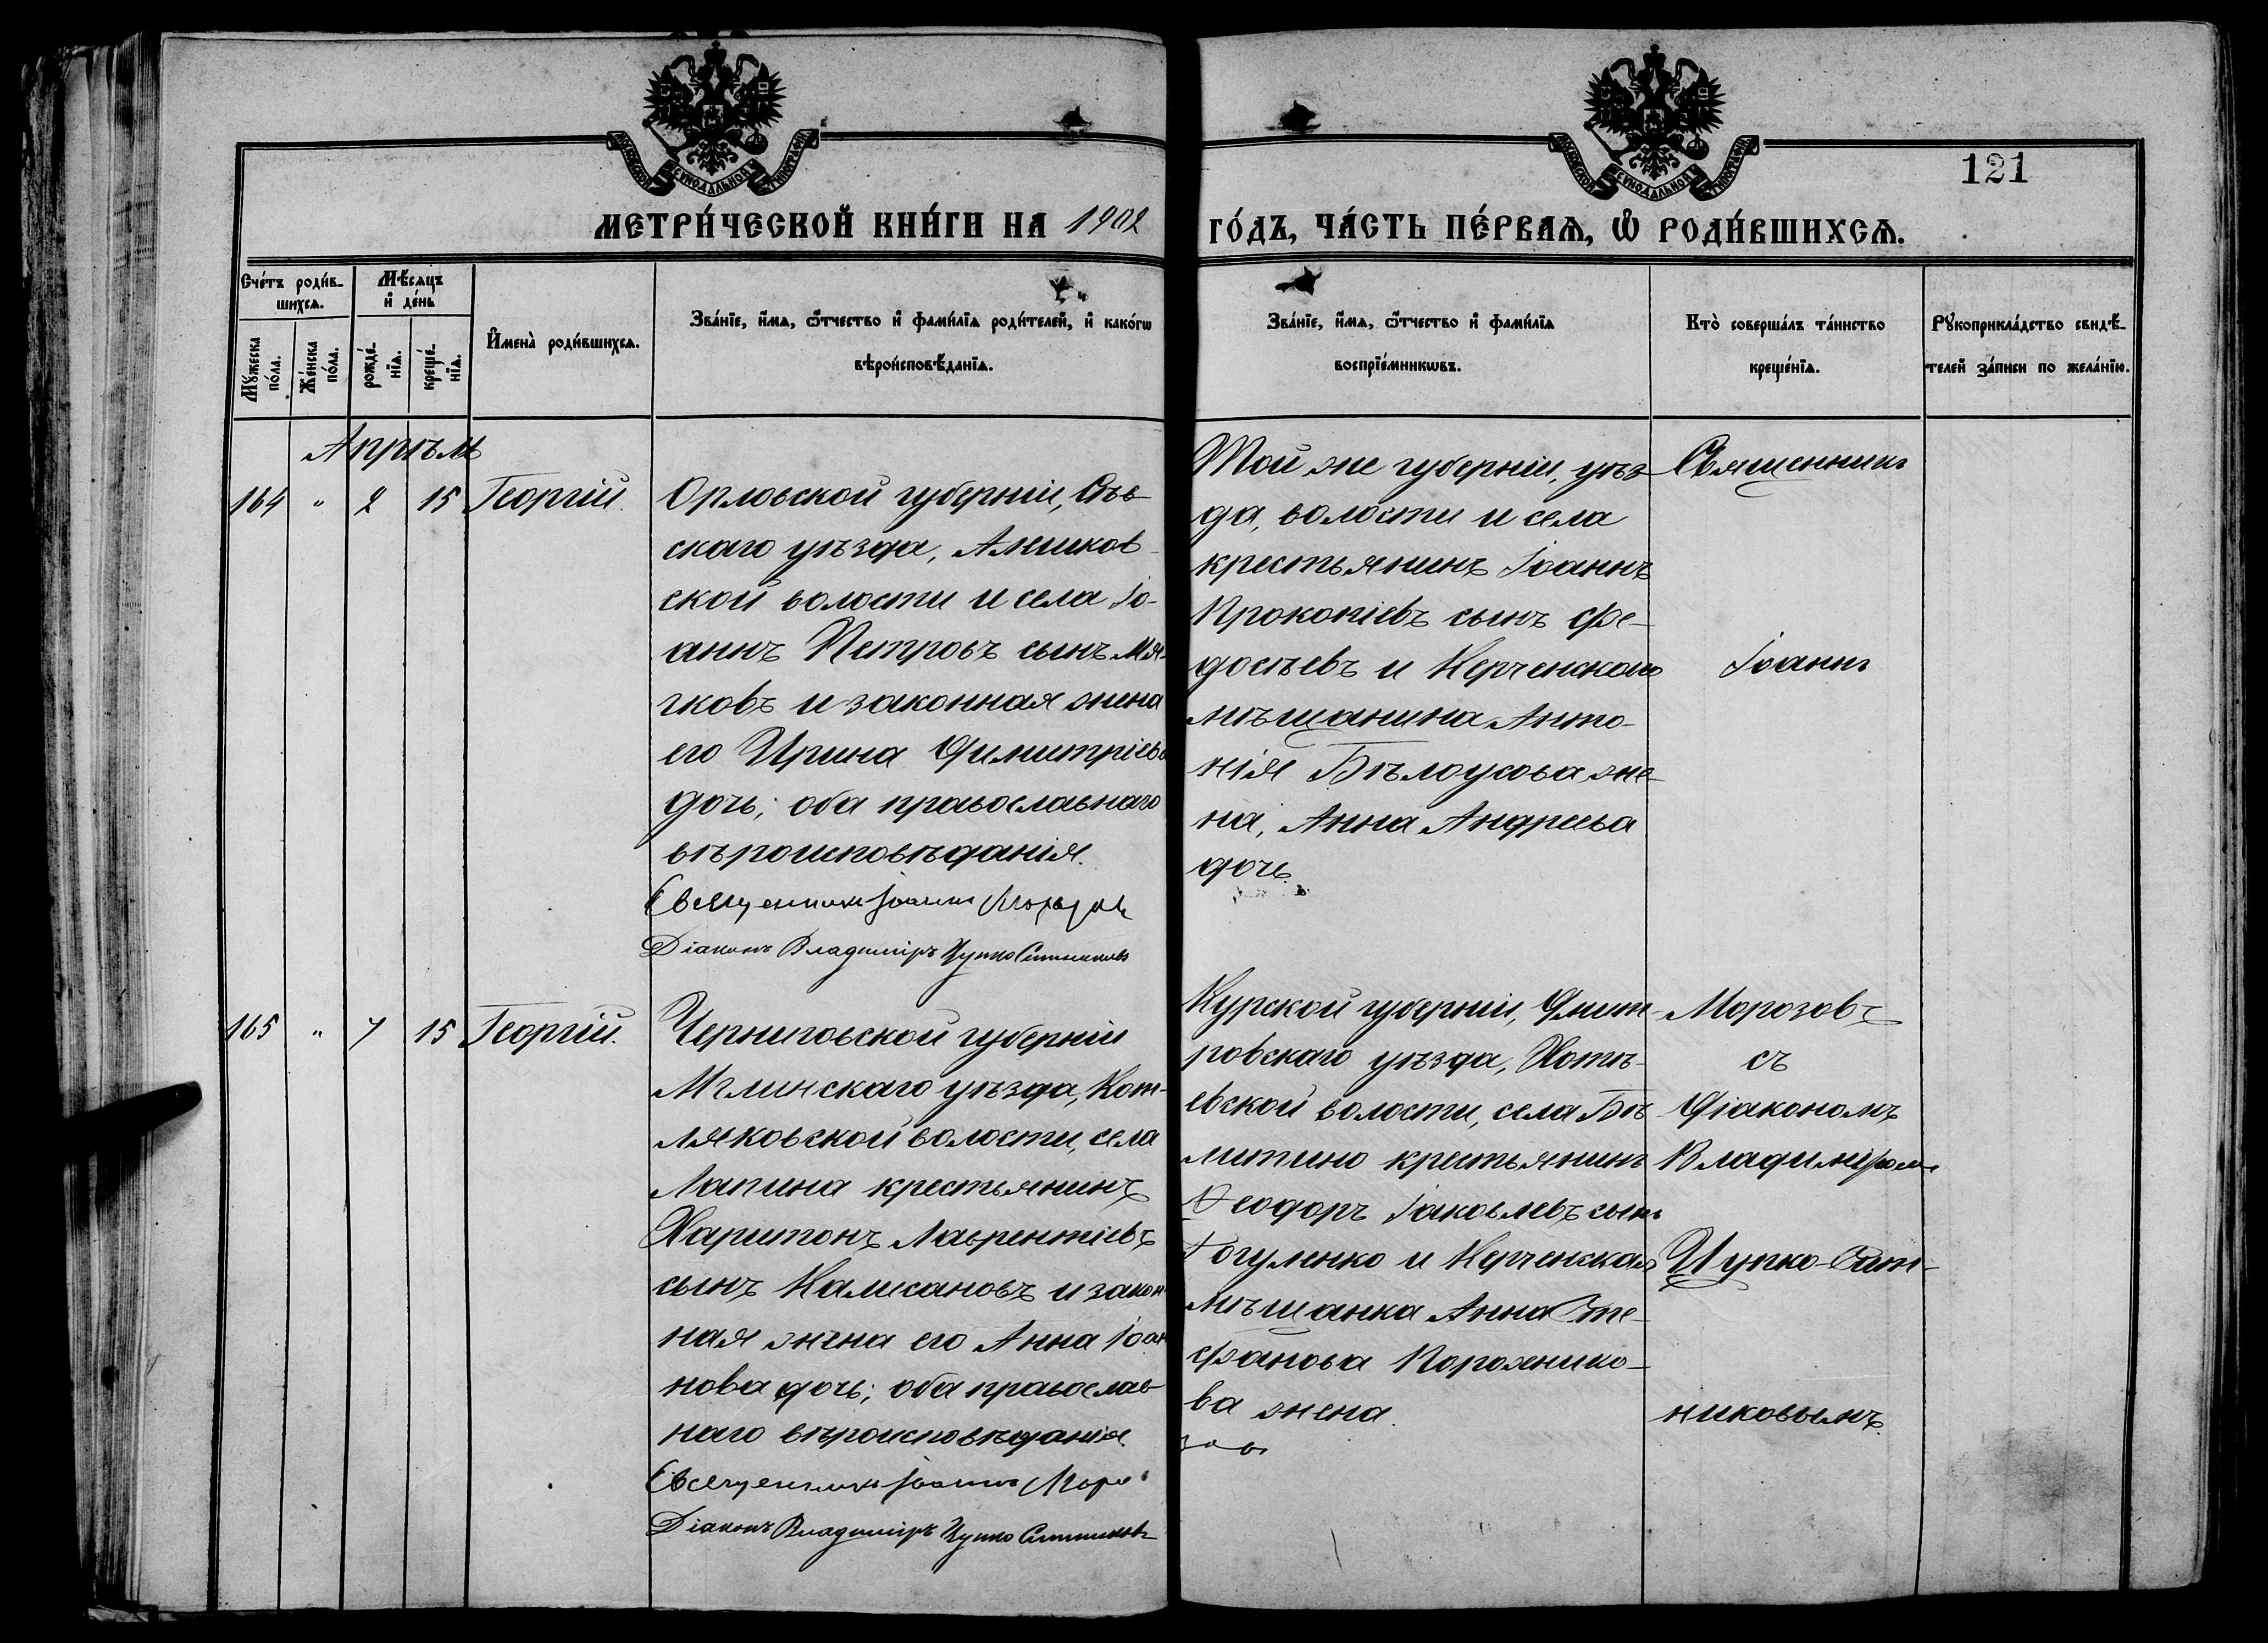 121
МЕТРИ́ЧЕСКОЙ КНИ́ГИ НА 1902 ГО́ДЪ, ЧА́СТЬ ПЕ́РВАѦ, Ѡ҆ РОДИ́ВШИХСѦ.
Сче́тъ роди́в-
шихсѧ.
Мꙋ́жеска
по́ла.
Же́нска
по́ла.
Мѣ́сяцъ
и҆ де́нь
рожде́-
нїѧ.
креще́-
нїѧ.
И҆мена̀ роди́вшихсѧ.
Зва́нїе, и҆́мѧ, ѻ҆́тчество и҆ фами́лїѧ роди́телей, и҆ како́гѡ
вѣроисповѣ́данїѧ.
Зва́нїе, и҆́мѧ, ѻ҆́тчество и҆ фами́лїѧ
воспрїе́мникѡвъ.
Кто̀ соверша́лъ та́инство
креще́нїѧ.
Рꙋкоприкла́дство свидѣ́-
телей за́писи по жела́нїю.
Апрѣль
164 " 2 15 Георгій.
Орловской губерніи, Сѣв-
скаго уѣзда, Алешков-
ской волости и села Іо-
аннъ Петровъ сынъ Мя-
гковъ и законная жена
его Ирина Димитріева
дочь; оба православнаго
вѣроисповѣданія.
Священникъ Іоаннъ Морозовъ
Діаконъ Владиміръ Цупко Ситниковъ
Той же губерніи, уѣз-
да, волости и села
крестьянинъ Іоаннъ
Прокопіевъ сынъ Фе-
досѣевъ и Керченскаго
мѣщанина Анто-
нія Бѣлоусова же-
на, Анна Андреева
дочь
Священникъ
Іоаннъ
165 " 7 15 Георгій.
Черниговской губерніи
Мглинскаго уѣзда, Кот-
ляковской волости, села
Лапина крестьянинъ
Харитонъ Лаврентіевъ
сынъ Калисановъ и закон-
ная жена его Анна Іоан-
нова дочь; оба православ-
наго вѣроисповѣданія
Священникъ Іоаннъ Моро
Діаконъ Владиміръ Цупко Ситниковъ
Курской губерніи, Дмит-
ровскаго уѣзда, Хотѣ-
евской волости, села Бѣ-
литино крестьянинъ
Ѳеодоръ Іаковлевъ сынъ
Гогуленко и Керченская
мѣщанка Анна Сте-
фанова
ва жена.
Морозовъ
съ
Діакономъ
Владиміромъ
Цупко-Сит-
никовымъ.